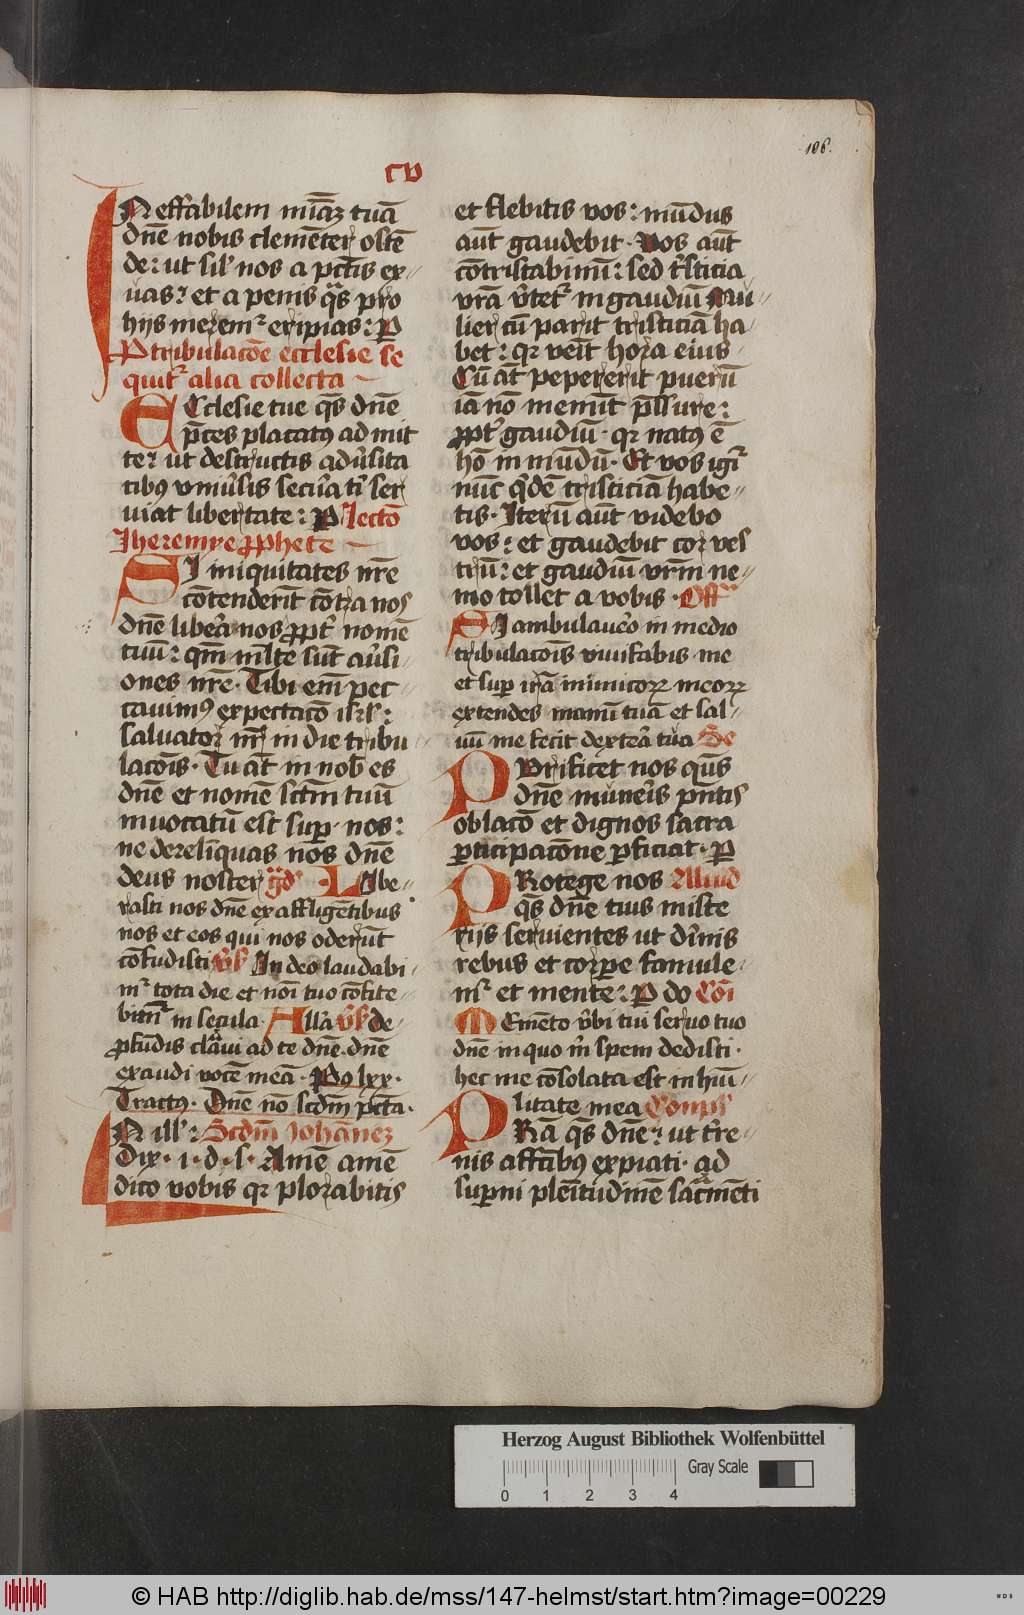 106.
cv
INeffabilem miãz tuã
dñe nobis clemẽter ostẽ
de: ut sil' nos a pctis ex-
uas: et a penis q̃s pro
hijs meremr̃ eripias: P
P tribulacõe ecclesie se
quit' alia collecta
ECclesie tue q̃s dñe
p̃ces placatus admit
te: ut destructis adũsita
tibus vniũsis secũa t' ser
uiat libertate: P lectõ
Jheremye pphete
SI iniquitates nr̃e
cõtenderĩt cõtra nos
dñe liberã nos ppt' nomẽ
tuũ: qm̃ mlte sũt aũsi-
ones nr̃e. Tibi em̃ pec-
cauimus expectacõ isrl':
saluator nr̃ in die tribu
lacõis. Tu aũt in nob es
dñe et nomẽ sctm̃ tuũ
inuocatũ est sup nos:
ne derelĩquas nos dñe
deus noster gd' LIbe-
rasti nos dñe ex affligẽtibus
nos et eos qui nos oderũt
cõfudisti vs' In deo laudabi-
mr̃ tota die et noĩ tuo cõfite-
bimr̃ in secula. All'a vs' de
pfũdis clãui ad te dñe. dñe
exaudi vocẽ meã. Ps lxx.
Tractus. Dñe nõ scdm̃ pctã.
IN ill': Scdm̃ Johãnez
Dix. i. d. s. Amẽ amẽ
dico vobis qr plorabitis
et flebitis vos: mũdus
aũt gaudebit. Vos aũt
cõtristabimĩ: sed tsticia
vr̃a ṽtet' in gaudiũ Mu-
lier cũ parit tristiciã ha-
bet: qr veĩt hora eius
Cũ aũt pepererit puerũ
iã nõ meminit p̃ssure:
ppt' gaudiũ. qr natus ẽ
hõ in mũdũ. Et vos igr̃
nũc qdẽ tristiciã habe-
tis. Iterũ aũt videbo
vos: et gaudebit cor ves
trũ: et gaudiũ vrm̃ ne-
mo tollet a vobis. Off
SI ambulauẽo in medio
tribulacõis viuificabis me
et sup irã inimicorz meorz
extendes manũ tuã et sal-
uũ me fecit dextẽa tua Se
PVrificet nos q̃s
dñe munẽis pñtis
oblacõ et dignos sacra
pticipacõne pficiat. P
PRotege nos Aliud
q̃s dñe tuis miste
rijs seruientes ut diĩnis
rebus et corpe famule
mr̃ et mente: P do Cõi
MEmẽto ṽbi tui seruo tuo
dñe in quo m̃ spem dedisti.
hec me cõsolata est in hũi-
litate mea Compl'
PRã q̃s dñe: ut tr̃e-
nis affcĩbus expiati. ad
supni pleĩtudinẽ sacmẽti
Herzog August Bibliothek Wolfenbüttel
Gray Scale
0 1 2 3 4
© HAB http://diglib.hab.de/mss/147-helmst/start.htm?image=00229